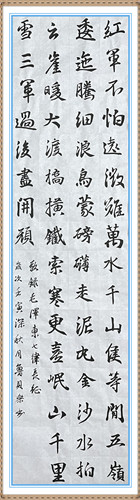 紅軍不怕遠徵難萬水千山侯等閒五嶺
逶迤騰細浪烏蒙磅礴走泥丸金沙水拍
云崖暖大渡橋橫鐵索寒更喜岷山千里
雪三軍過後盡開顏
敬錄毛澤東七律長征
歲次壬寅深秋月